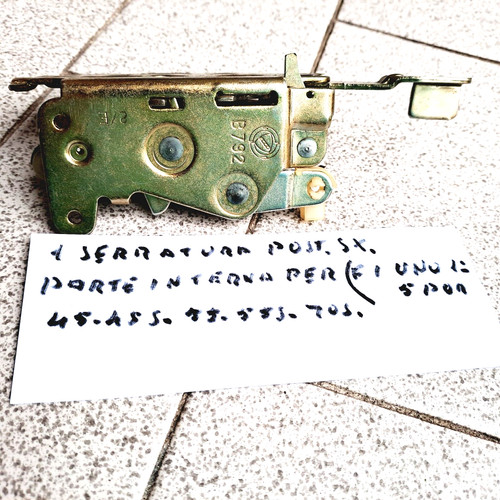 2/E
B792
1 SERRATURA POST. SX.
PARTE INTERNA PER ( FI UNO 1:
5 POR
45. 45S. 55. 55S. 70S.